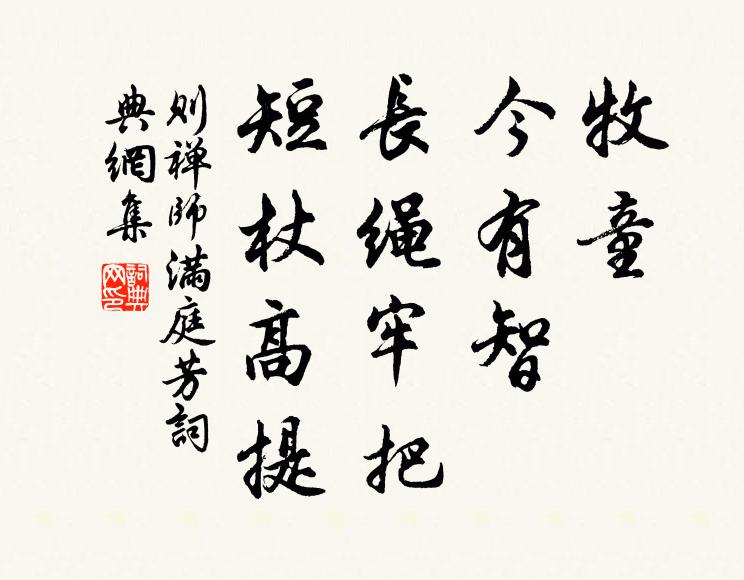 牧童
今有智
長绳牢把
短杖高提
则禅師满庭芳詞
典網集
詞典网印